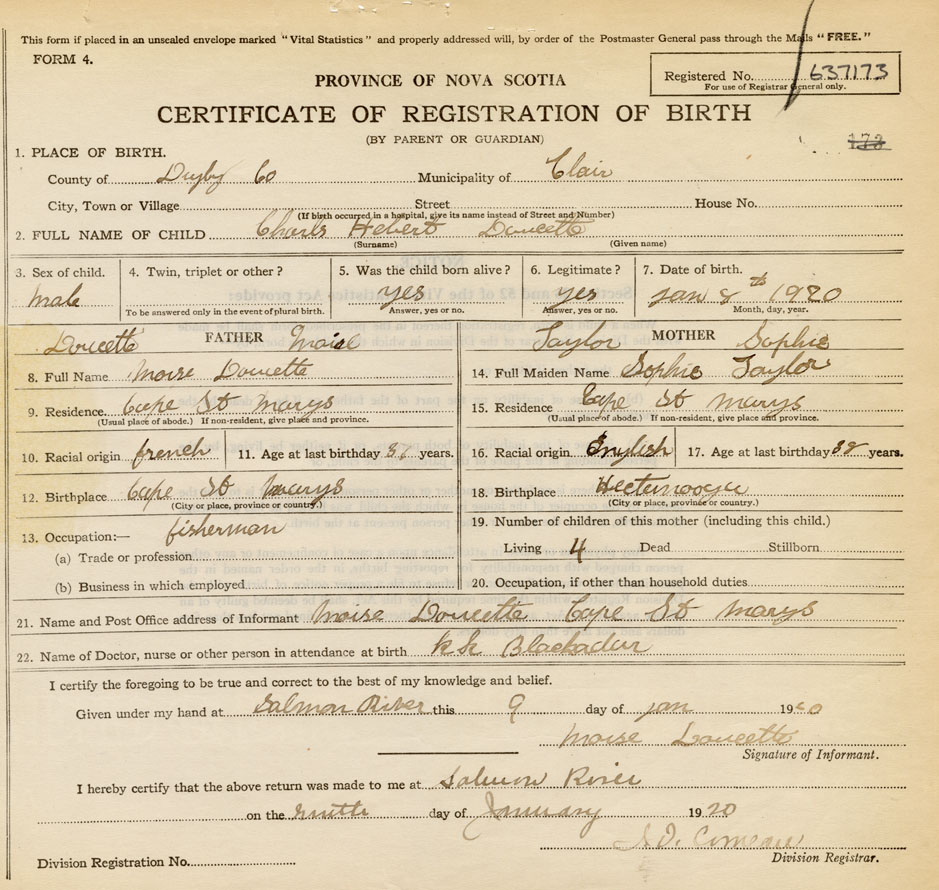 This form if placed in an unsealed envelope marked "Vital Statistics" and properly addressed will, by order of the Postmaster General pass through the Mails "FREE."
FORM 4.
Registered No. 637173
For use of Registrar General only.
PROVINCE OF NOVA SCOTIA
CERTIFICATE OF REGISTRATION OF BIRTH
(BY PARENT OR GUARDIAN)
172
1. PLACE OF BIRTH.
County of Digby Co Municipality of Clair
City, Town or Village Street House No.
(If birth occurred in a hospital, give its name instead of Street and Number)
2. FULL NAME OF CHILD Charls Hebert Doucette
(Surname) (Given name)
3. Sex of child. 4. Twin, triplet or other? 5. Was the child born alive? 6. Legitimate? 7. Date of birth.
Male yes yes Jan 8th 1920
To be answered only in the event of plural birth. Answer, yes or no. Answer, yes or no. Month, day, year.
Doucette FATHER Moise Taylor MOTHER Sophie
8. Full Name Moise Doucette 14. Full Maiden Name Sophie Taylor
9. Residence Cape St Marys 15. Residence Cape St Marys
(Usual place of abode.) If non-resident, give place and province. (Usual place of abode.) If non-resident, give place and province.
10. Racial origin french 11. Age at last birthday years. 16. Racial origin English 17. Age at last birthday 38 years.
12. Birthplace Cape St Marys 18. Birthplace
(City or place, province or country.) (City or place, province or country.)
13. Occupation:— fisherman 19. Number of children of this mother (including this child.)
(a) Trade or profession Living 4 Dead Stillborn
(b) Business in which employed 20. Occupation, if other than household duties
21. Name and Post Office address of Informant Moise Doucette Cape St Marys
22. Name of Doctor, nurse or other person in attendance at birth Blackadar
I certify the foregoing to be true and correct to the best of my knowledge and belief.
Given under my hand at Salmon River this 9 day of Jan 1920
Moise Doucette
Signature of Informant.
I hereby certify that the above return was made to me at Salmon River
on the day of January 1920
Comeau
Division Registrar.
Division Registration No.